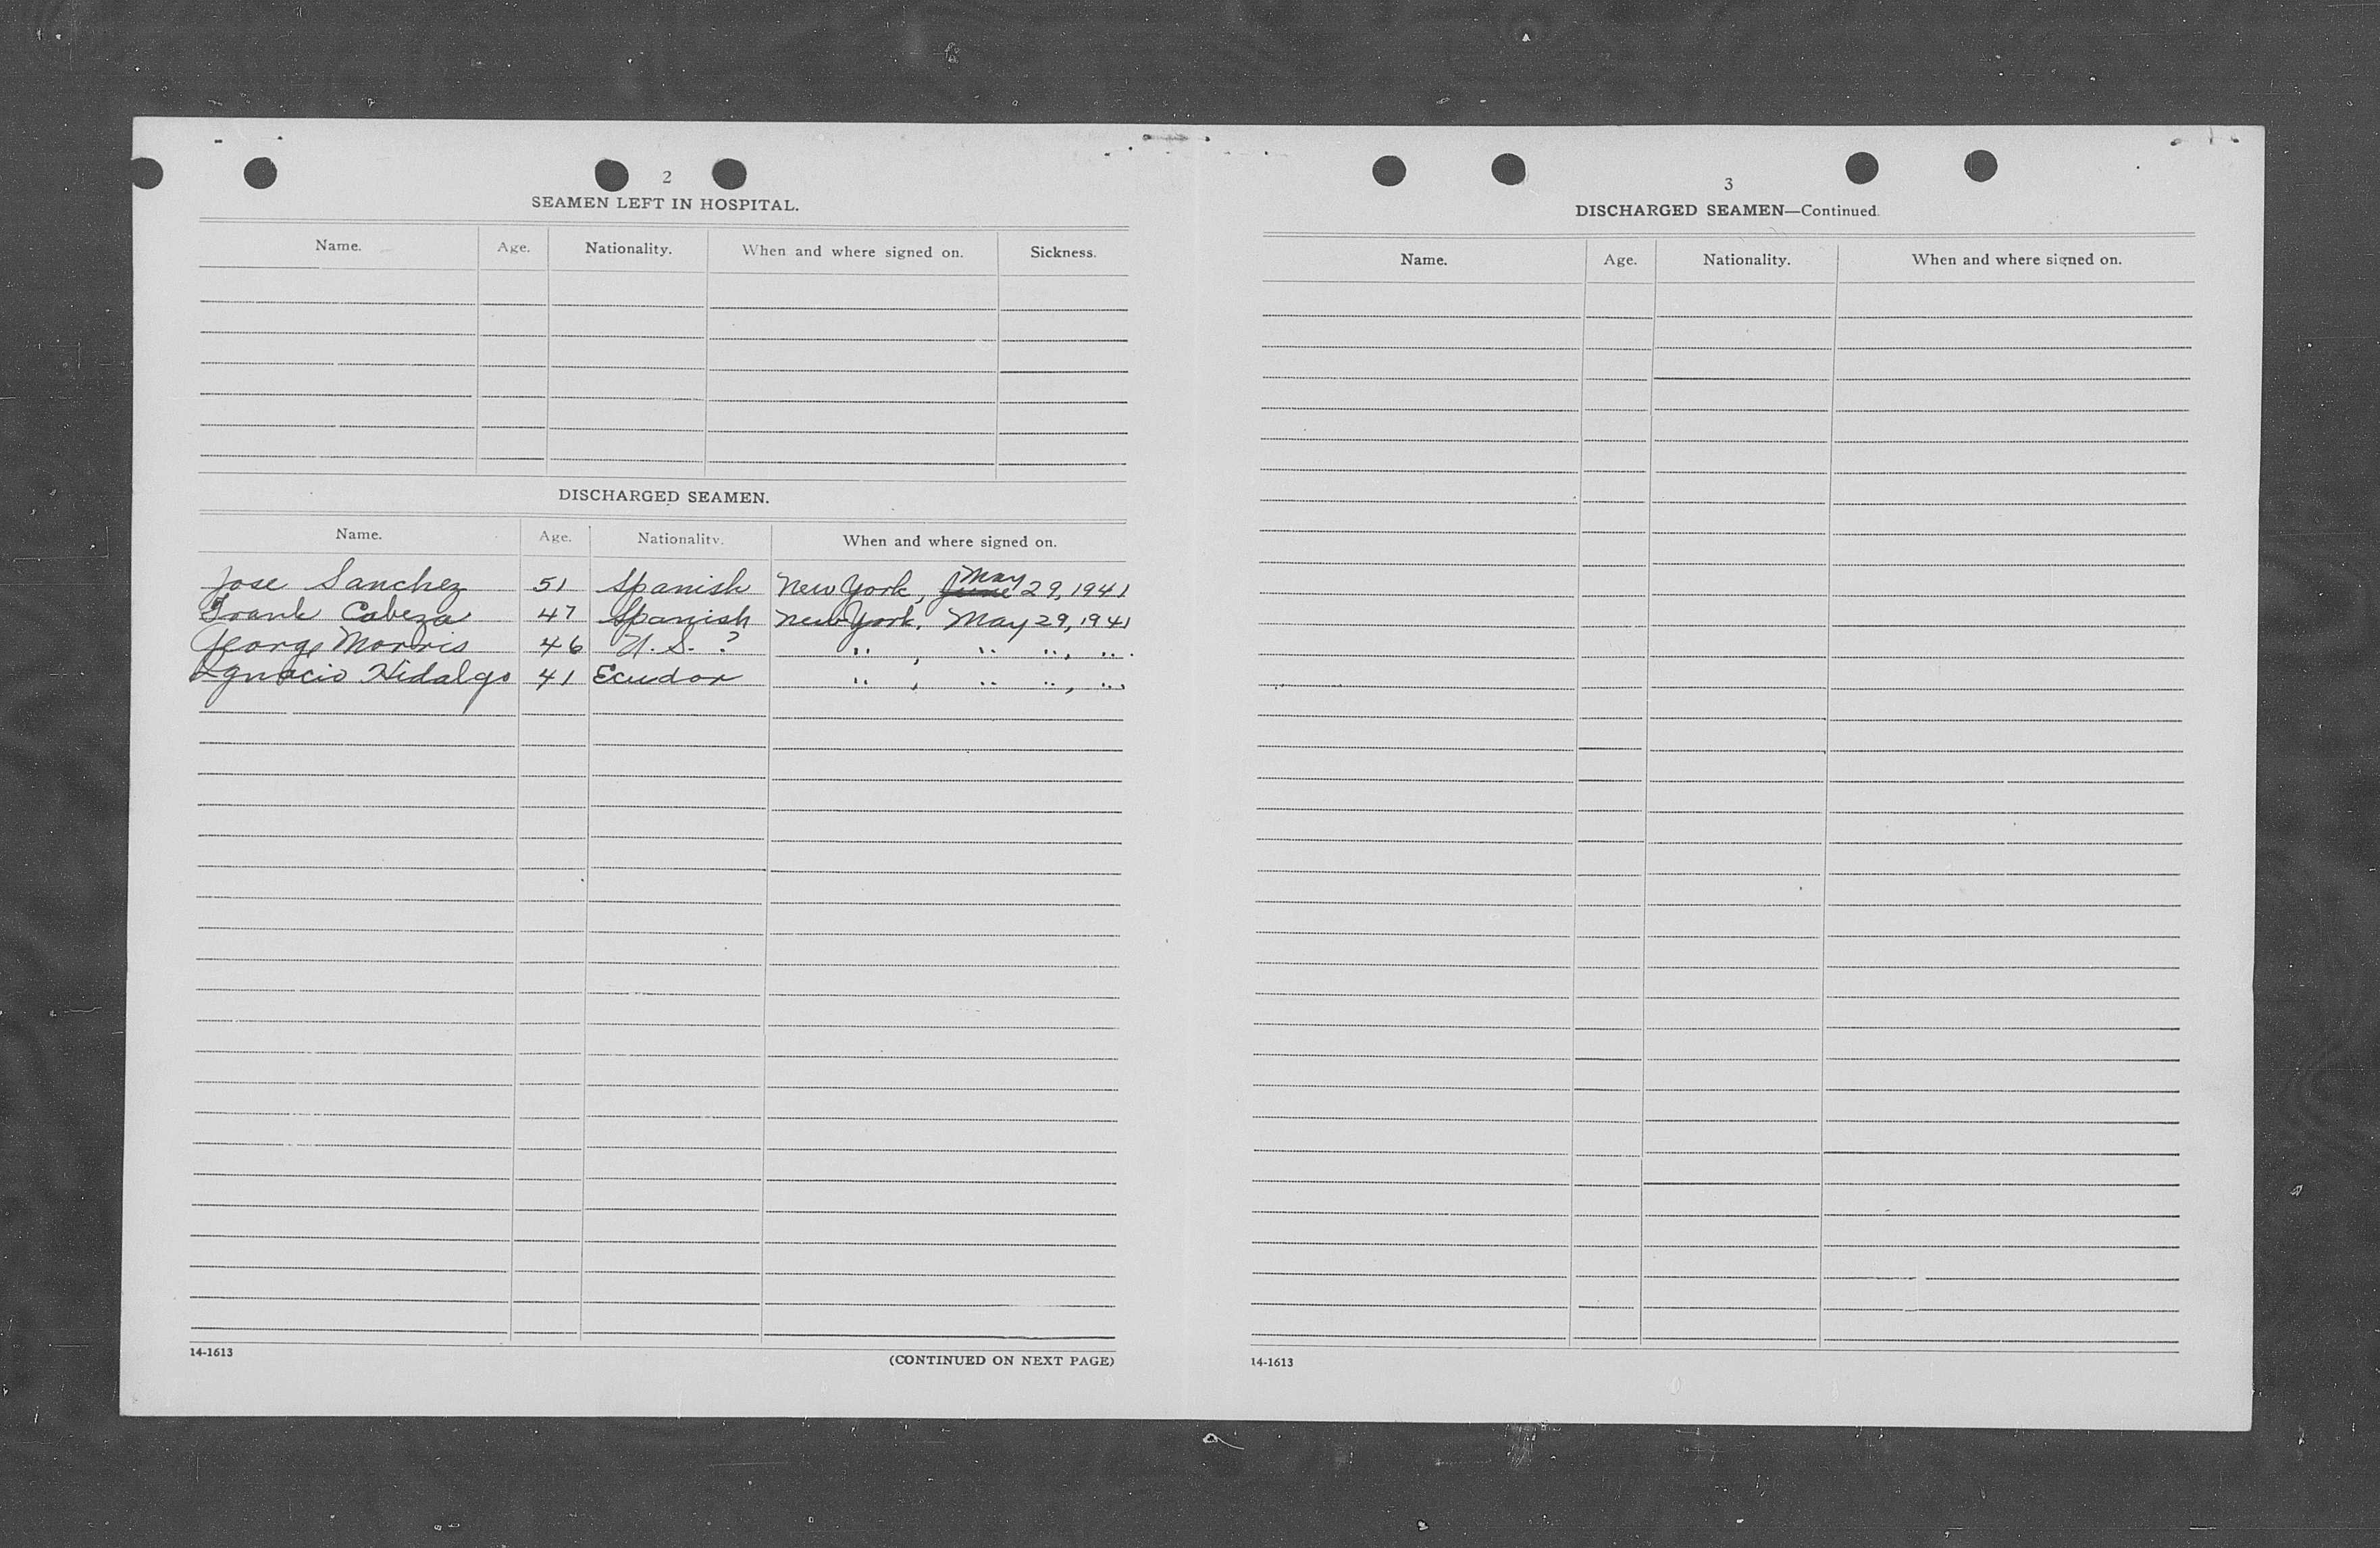 2
SEAMEN LEFT IN HOSPITAL.
Name. Age. Nationality. When and where signed on. Sickness.
DISCHARGED SEAMEN.
Name. Age. Nationality. When and where signed on.
Jose Sanchez 51 Spanish New York, June May 29, 1941
Frank Cabeza 47 Spanish New York, May 29, 1941
George Morris 46 U.S. ? " , " ", "
Ignacio Hidalgo 41 Ecudor " , " ", "
14-1613
(CONTINUED ON NEXT PAGE)
3
DISCHARGED SEAMEN—Continued.
Name. Age. Nationality. When and where signed on.
14-1613